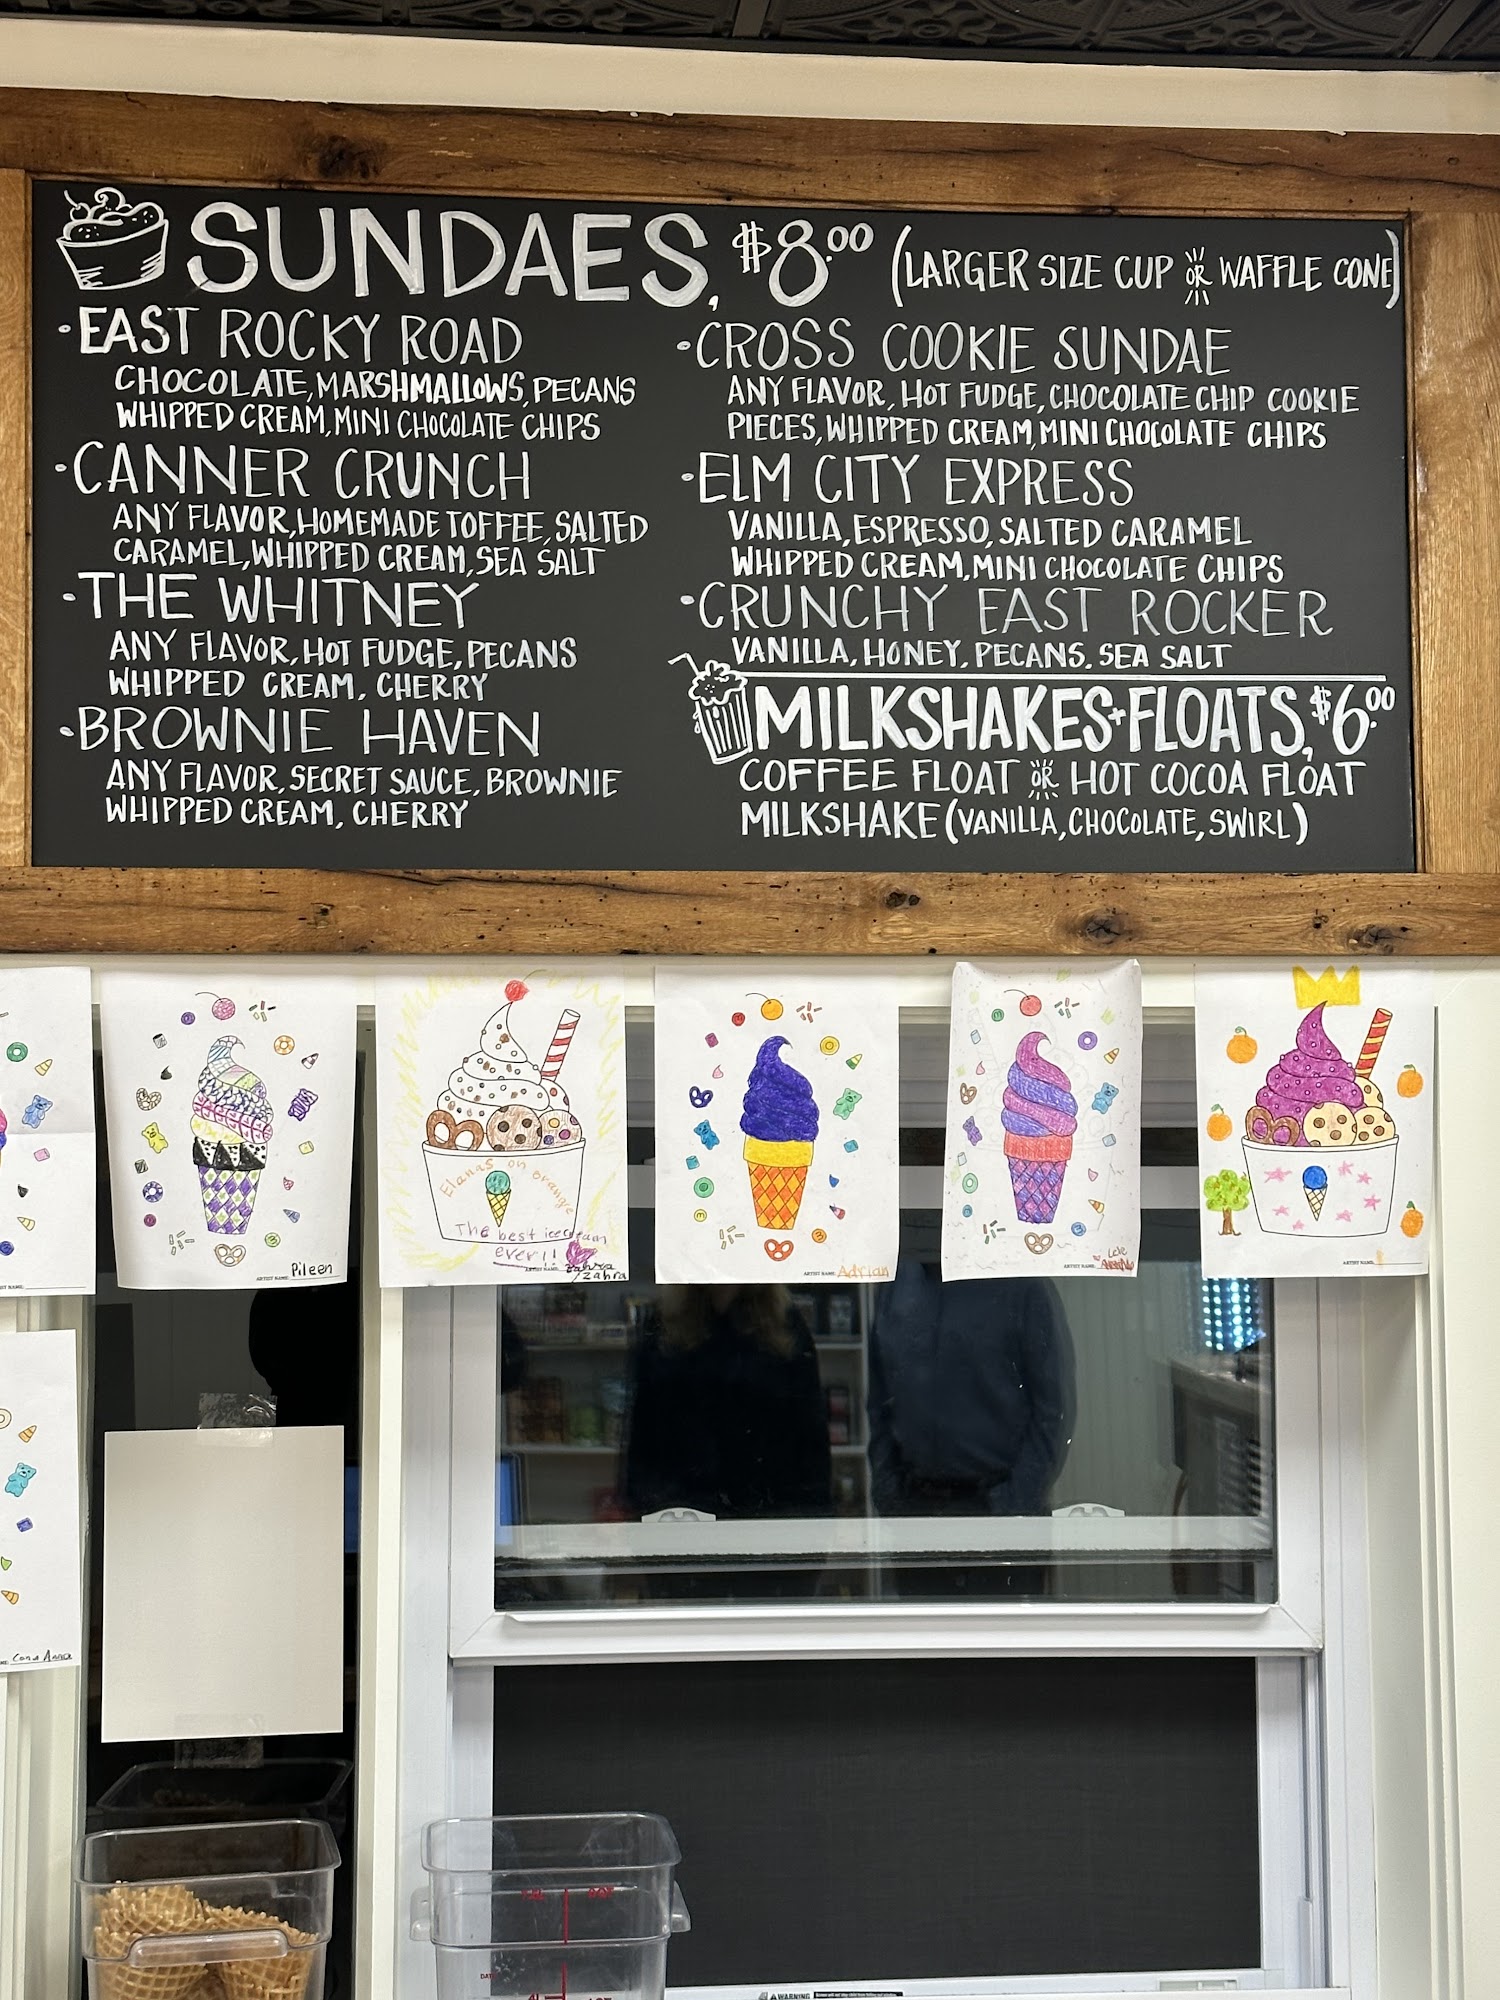 SUNDAES, $8.00 (LARGER SIZE CUP OR WAFFLE CONE)
• EAST ROCKY ROAD
CHOCOLATE, MARSHMALLOWS, PECANS
WHIPPED CREAM, MINI CHOCOLATE CHIPS
• CANNER CRUNCH
ANY FLAVOR, HOMEMADE TOFFEE, SALTED
CARAMEL, WHIPPED CREAM, SEA SALT
• THE WHITNEY
ANY FLAVOR, HOT FUDGE, PECANS
WHIPPED CREAM, CHERRY
• BROWNIE HAVEN
ANY FLAVOR, SECRET SAUCE, BROWNIE
WHIPPED CREAM, CHERRY
• CROSS COOKIE SUNDAE
ANY FLAVOR, HOT FUDGE, CHOCOLATE CHIP COOKIE
PIECES, WHIPPED CREAM, MINI CHOCOLATE CHIPS
• ELM CITY EXPRESS
VANILLA, ESPRESSO, SALTED CARAMEL
WHIPPED CREAM, MINI CHOCOLATE CHIPS
• CRUNCHY EAST ROCKER
VANILLA, HONEY, PECANS, SEA SALT
MILKSHAKES + FLOATS, $6.00
COFFEE FLOAT OR HOT COCOA FLOAT
MILKSHAKE (VANILLA, CHOCOLATE, SWIRL)
ARTIST NAME: Pileen
Elanas on orange
The best icecream
ever!!
zahra
zahra
ARTIST NAME: Adrian
ARTIST NAME: Lele
ARTIST NAME:
WARNING